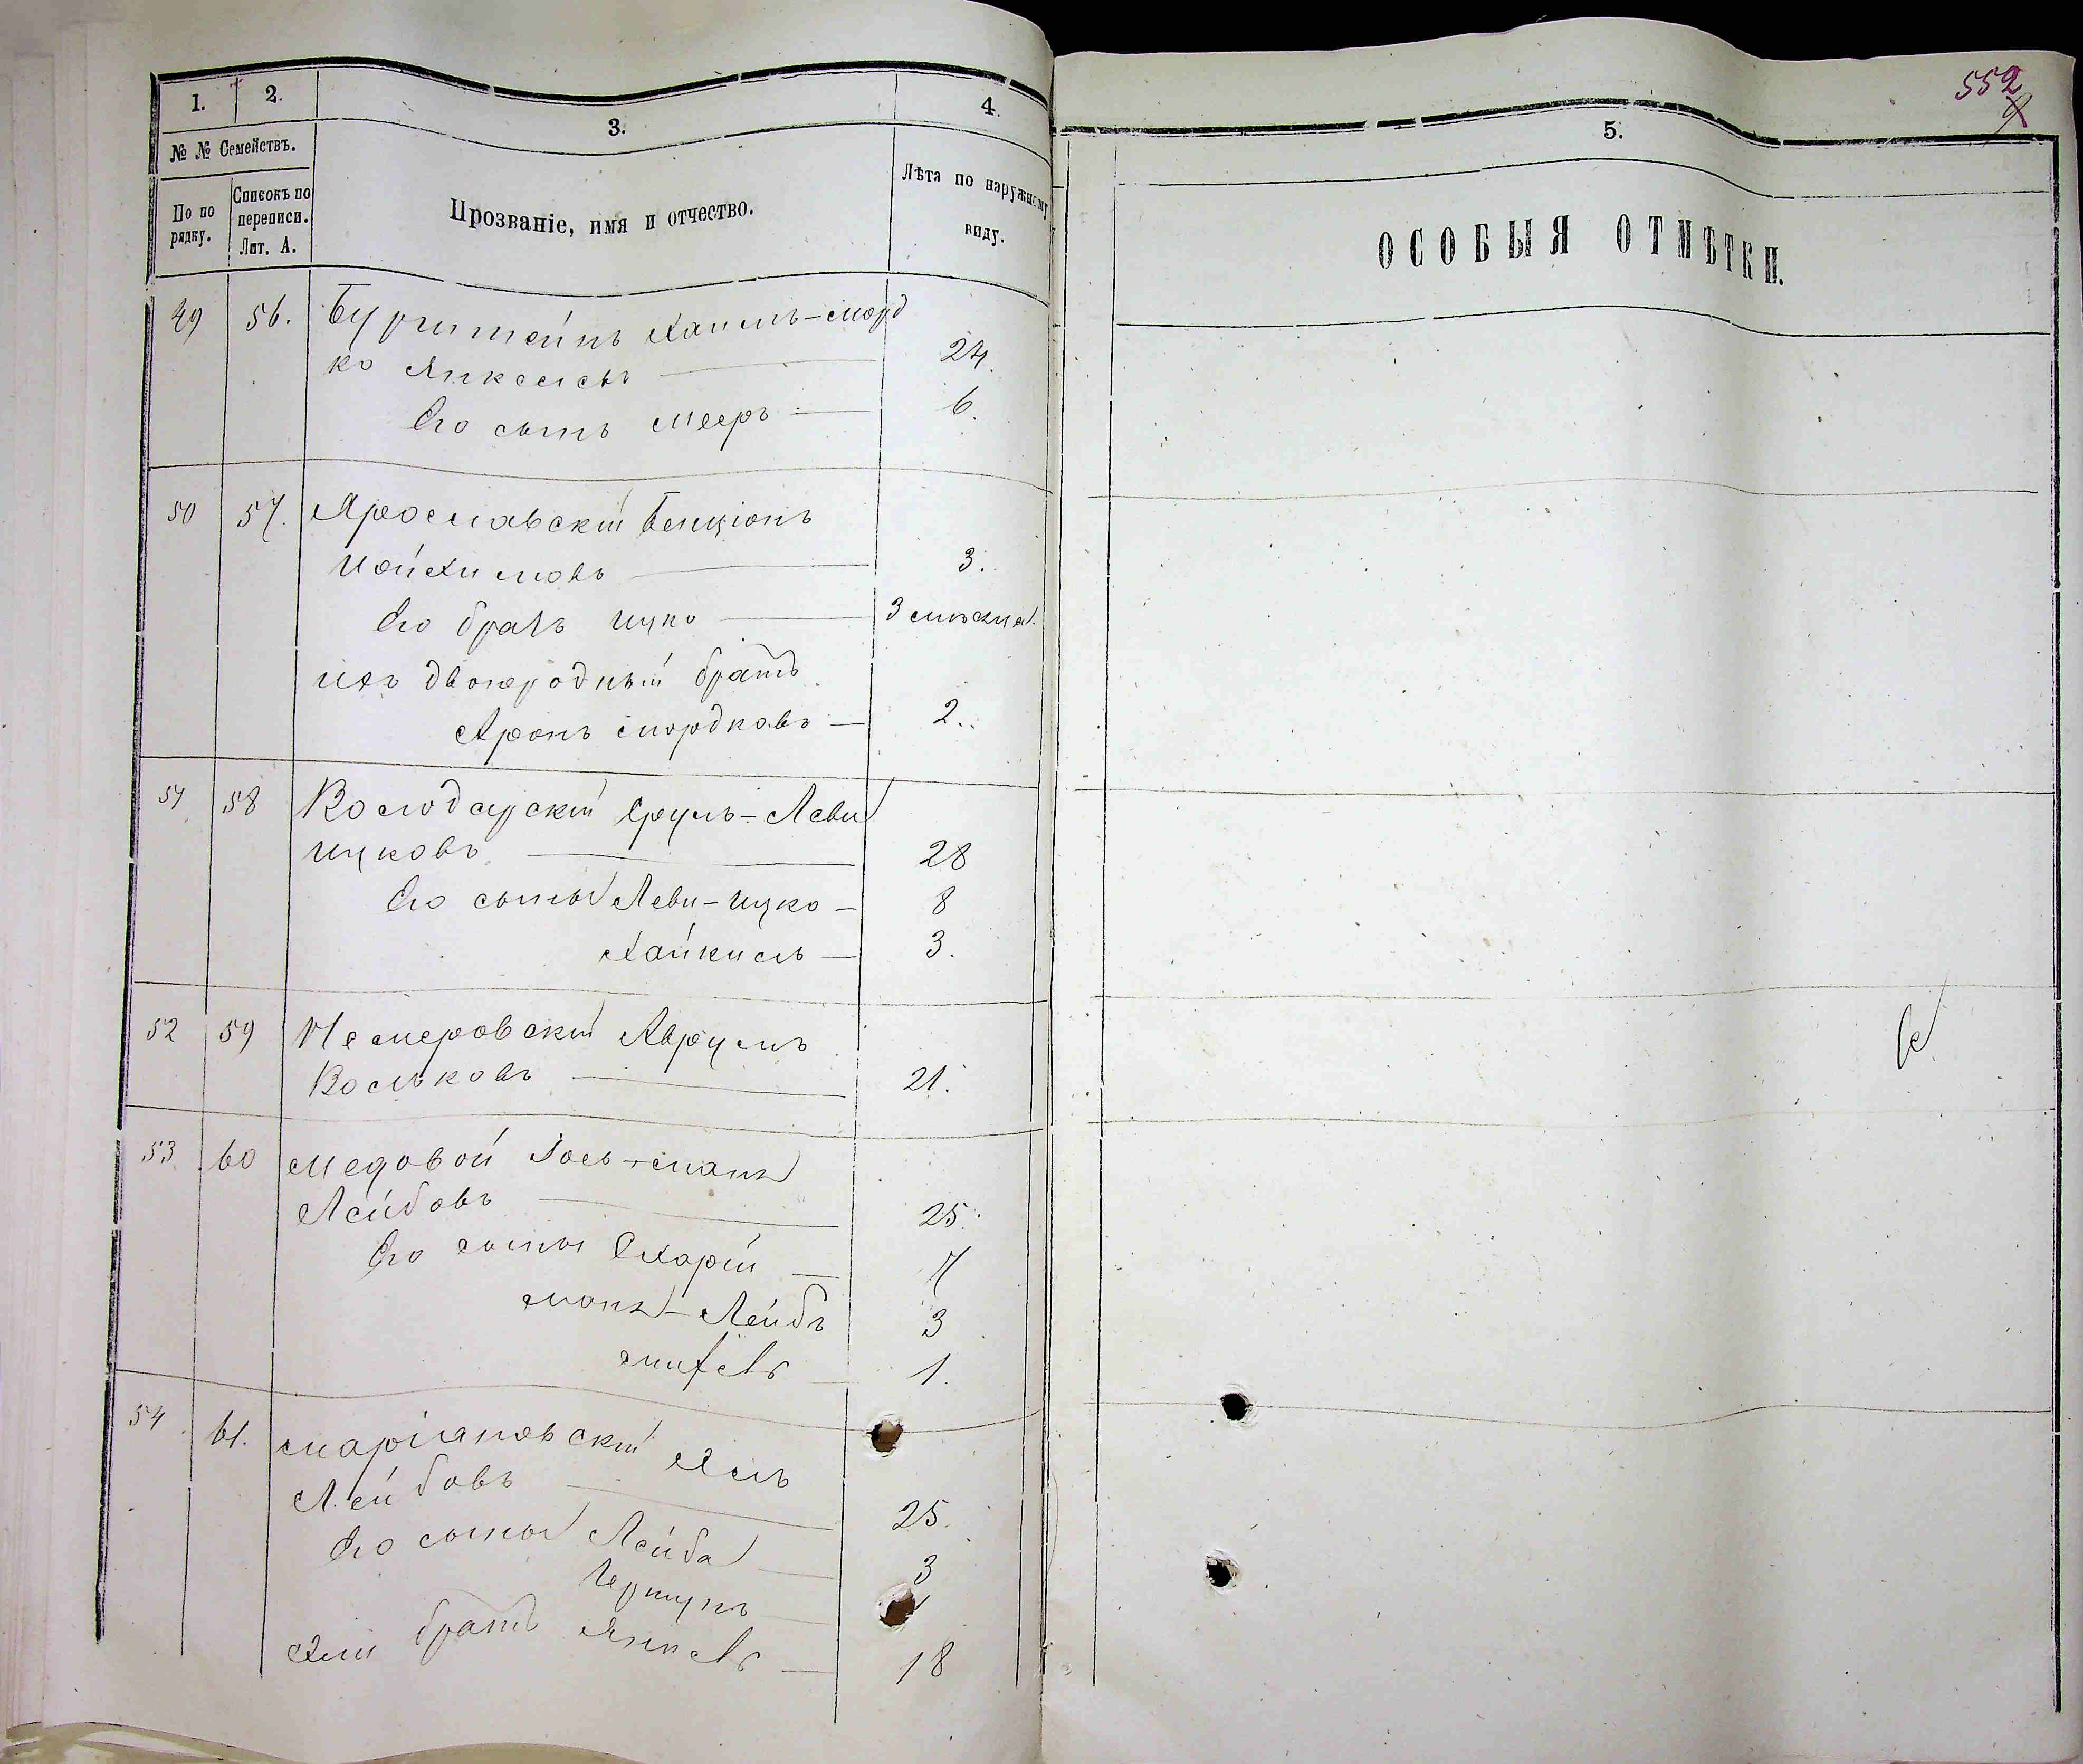 552
1.
2.
3.
4.
5.
№ № Семействъ.
По по
рядку.
Списокъ по
переписи.
Лит. А.
Прозваніе, имя и отчество.
Лѣта по наружному
виду.
ОСОБЫЯ ОТМѢТКИ.
49 56. Бурштейнъ Хаимъ-Морд
ко Янкелевъ 24.
Его сынъ Мееръ 6.
50 57. Ярославскій Бенціонъ
Мойхимовъ 3.
Его братъ Ицко 3 мѣсяца.
ихъ двоюродный братъ
Аронъ Мордковъ 2.
51 58 Володарскій Сруль-Леви
Ицковъ 28
Его сыновья Леви-Ицко 8
Хайкель 3.
52 59 Немеровскій Аврумъ
Вольковъ 21.
53 60 Медовой Іось-Мана
Лейбовъ 25.
Его сыновья Схарій 7
Мона-Лейбъ 3
1.
54 61. Маріяновскій Хемъ
Лейбовъ 25.
Его сыновья Лейба 3
Гершунъ
братъ Янкель 18